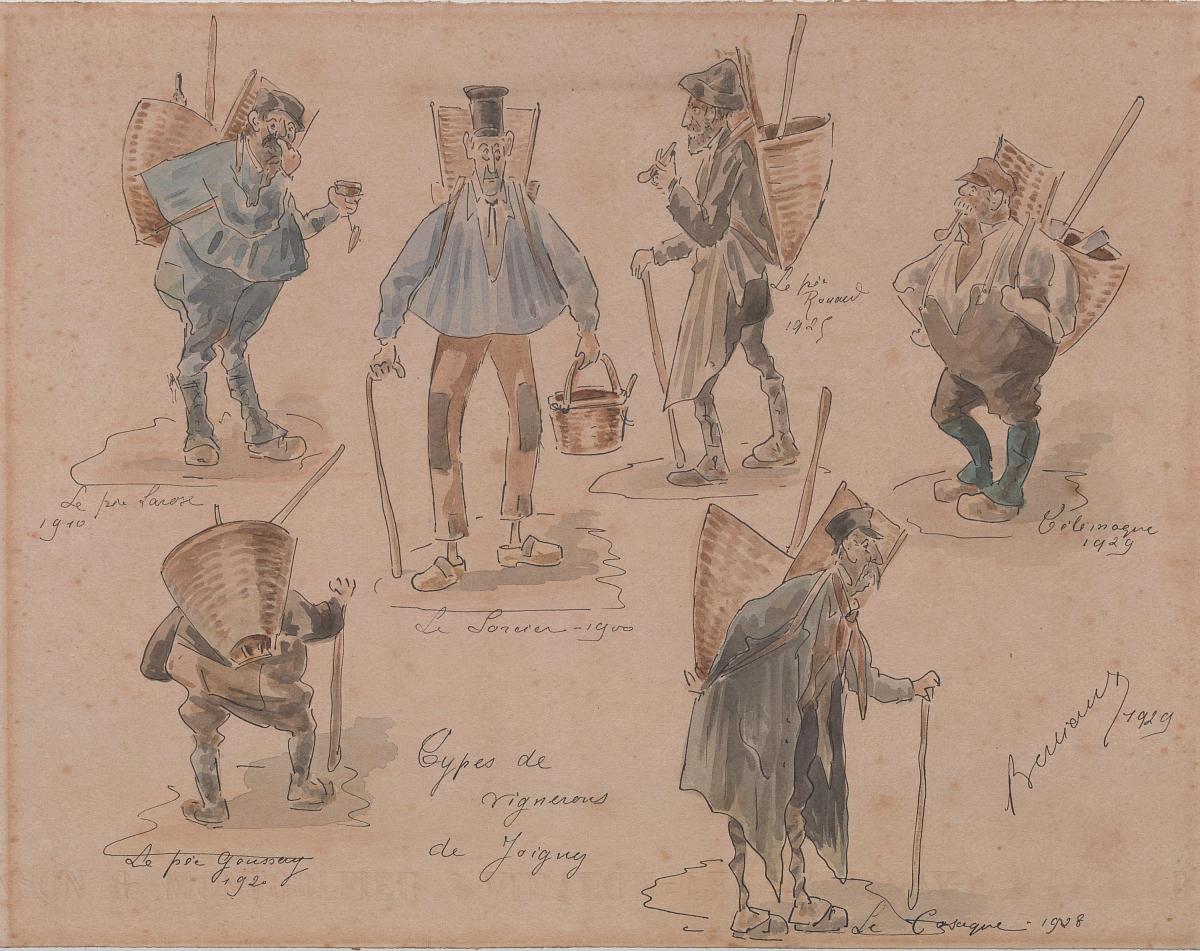 Le père Larose
1910
Le Sorcier - 1900
Le père
Rouard
1925
Télémaque
1929
Le père Goussery
1920
Types de
vignerons
de Joigny
Le Cosaque - 1928
1929